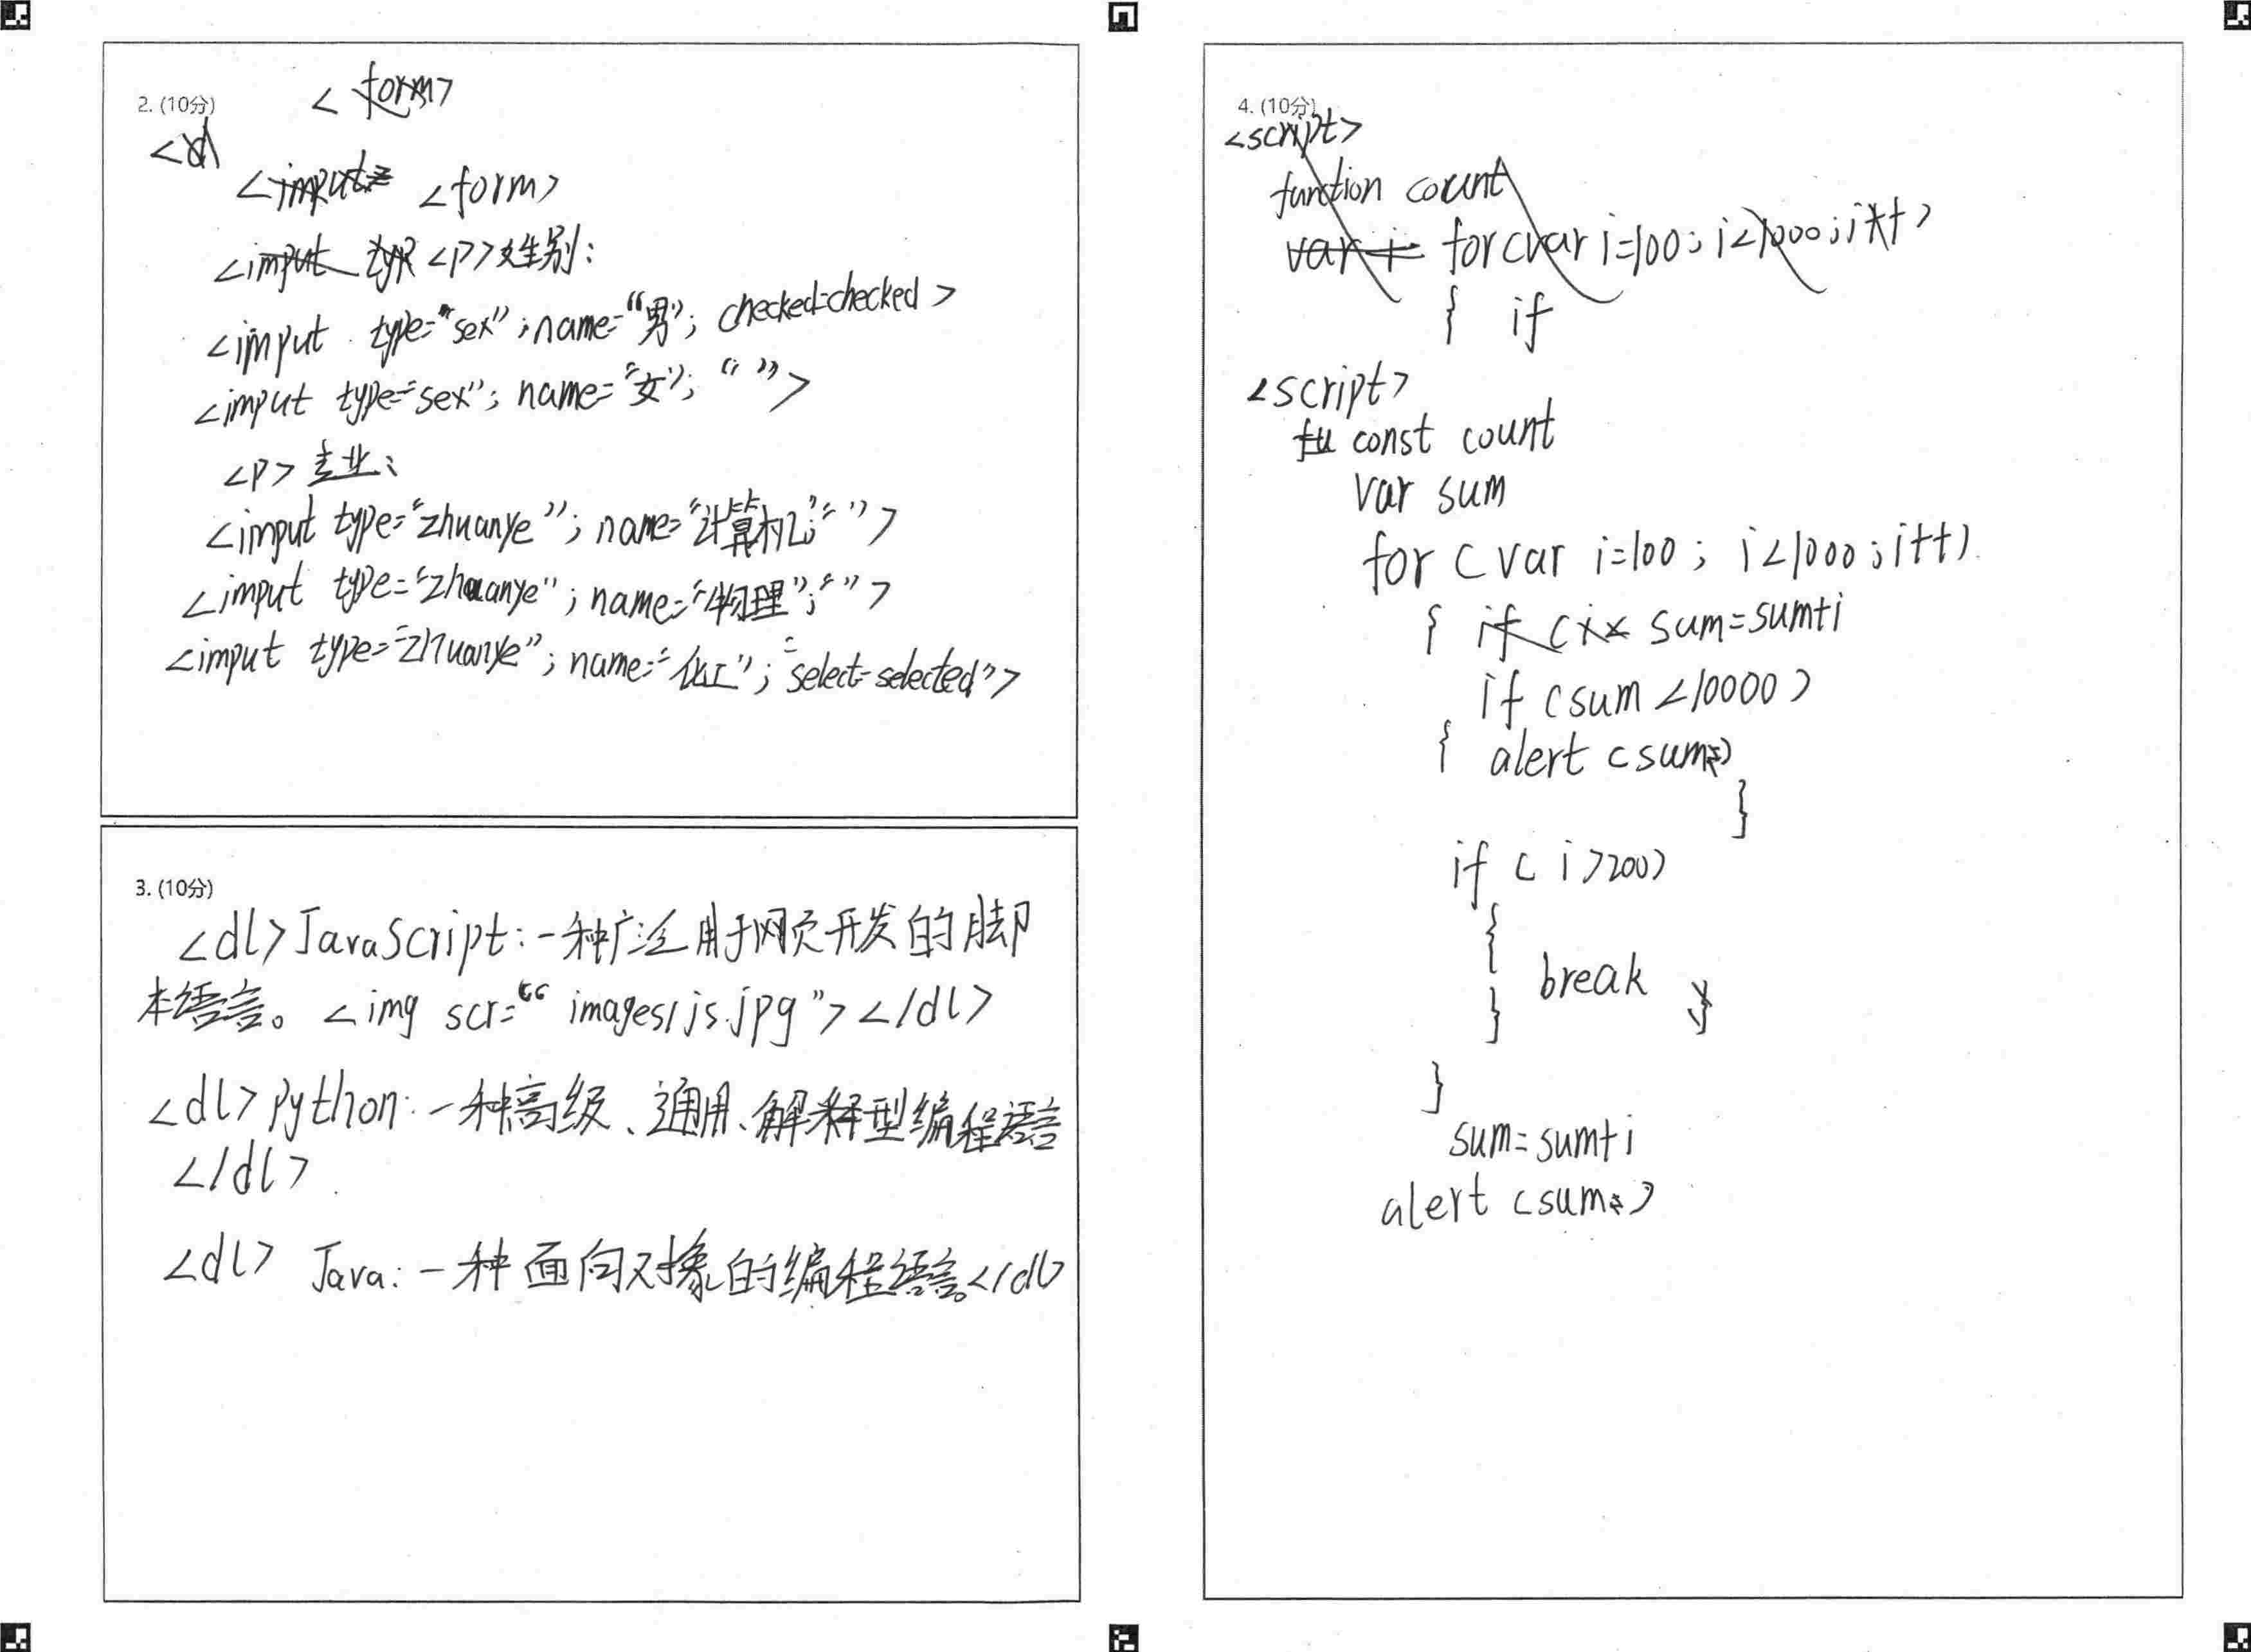 2. (10分)
<form>
<input type="sex"; name="男"; checked=checked >
<form>
<p>性别:
<input type="sex"; name="男"; checked=checked >
<input type="sex"; name="女"; " ">
<p>专业:
<input type="zhuanye"; name="计算机"; " ">
<input type="zhuanye"; name="物理"; " ">
<input type="zhuanye"; name="化工"; "select=selected">
3. (10分)
<dl>JavaScript:一种广泛用于网页开发的脚
本语言。<img scr="images/js.jpg"></dl>
<dl>Python:一种高级、通用、解释型编程语言
</dl>
<dl> Java:一种面向对象的编程语言。</dl>
4. (10分)
<script>
function count
for(var i=100; i<1000; i++)
{ if
<script>
const count
var sum
for (var i=100; i<1000; i++)
{ sum=sum+i
if (sum<10000)
{ alert (sum)
}
if (i>200)
{
break
}
}
sum=sum+i
alert (sum)